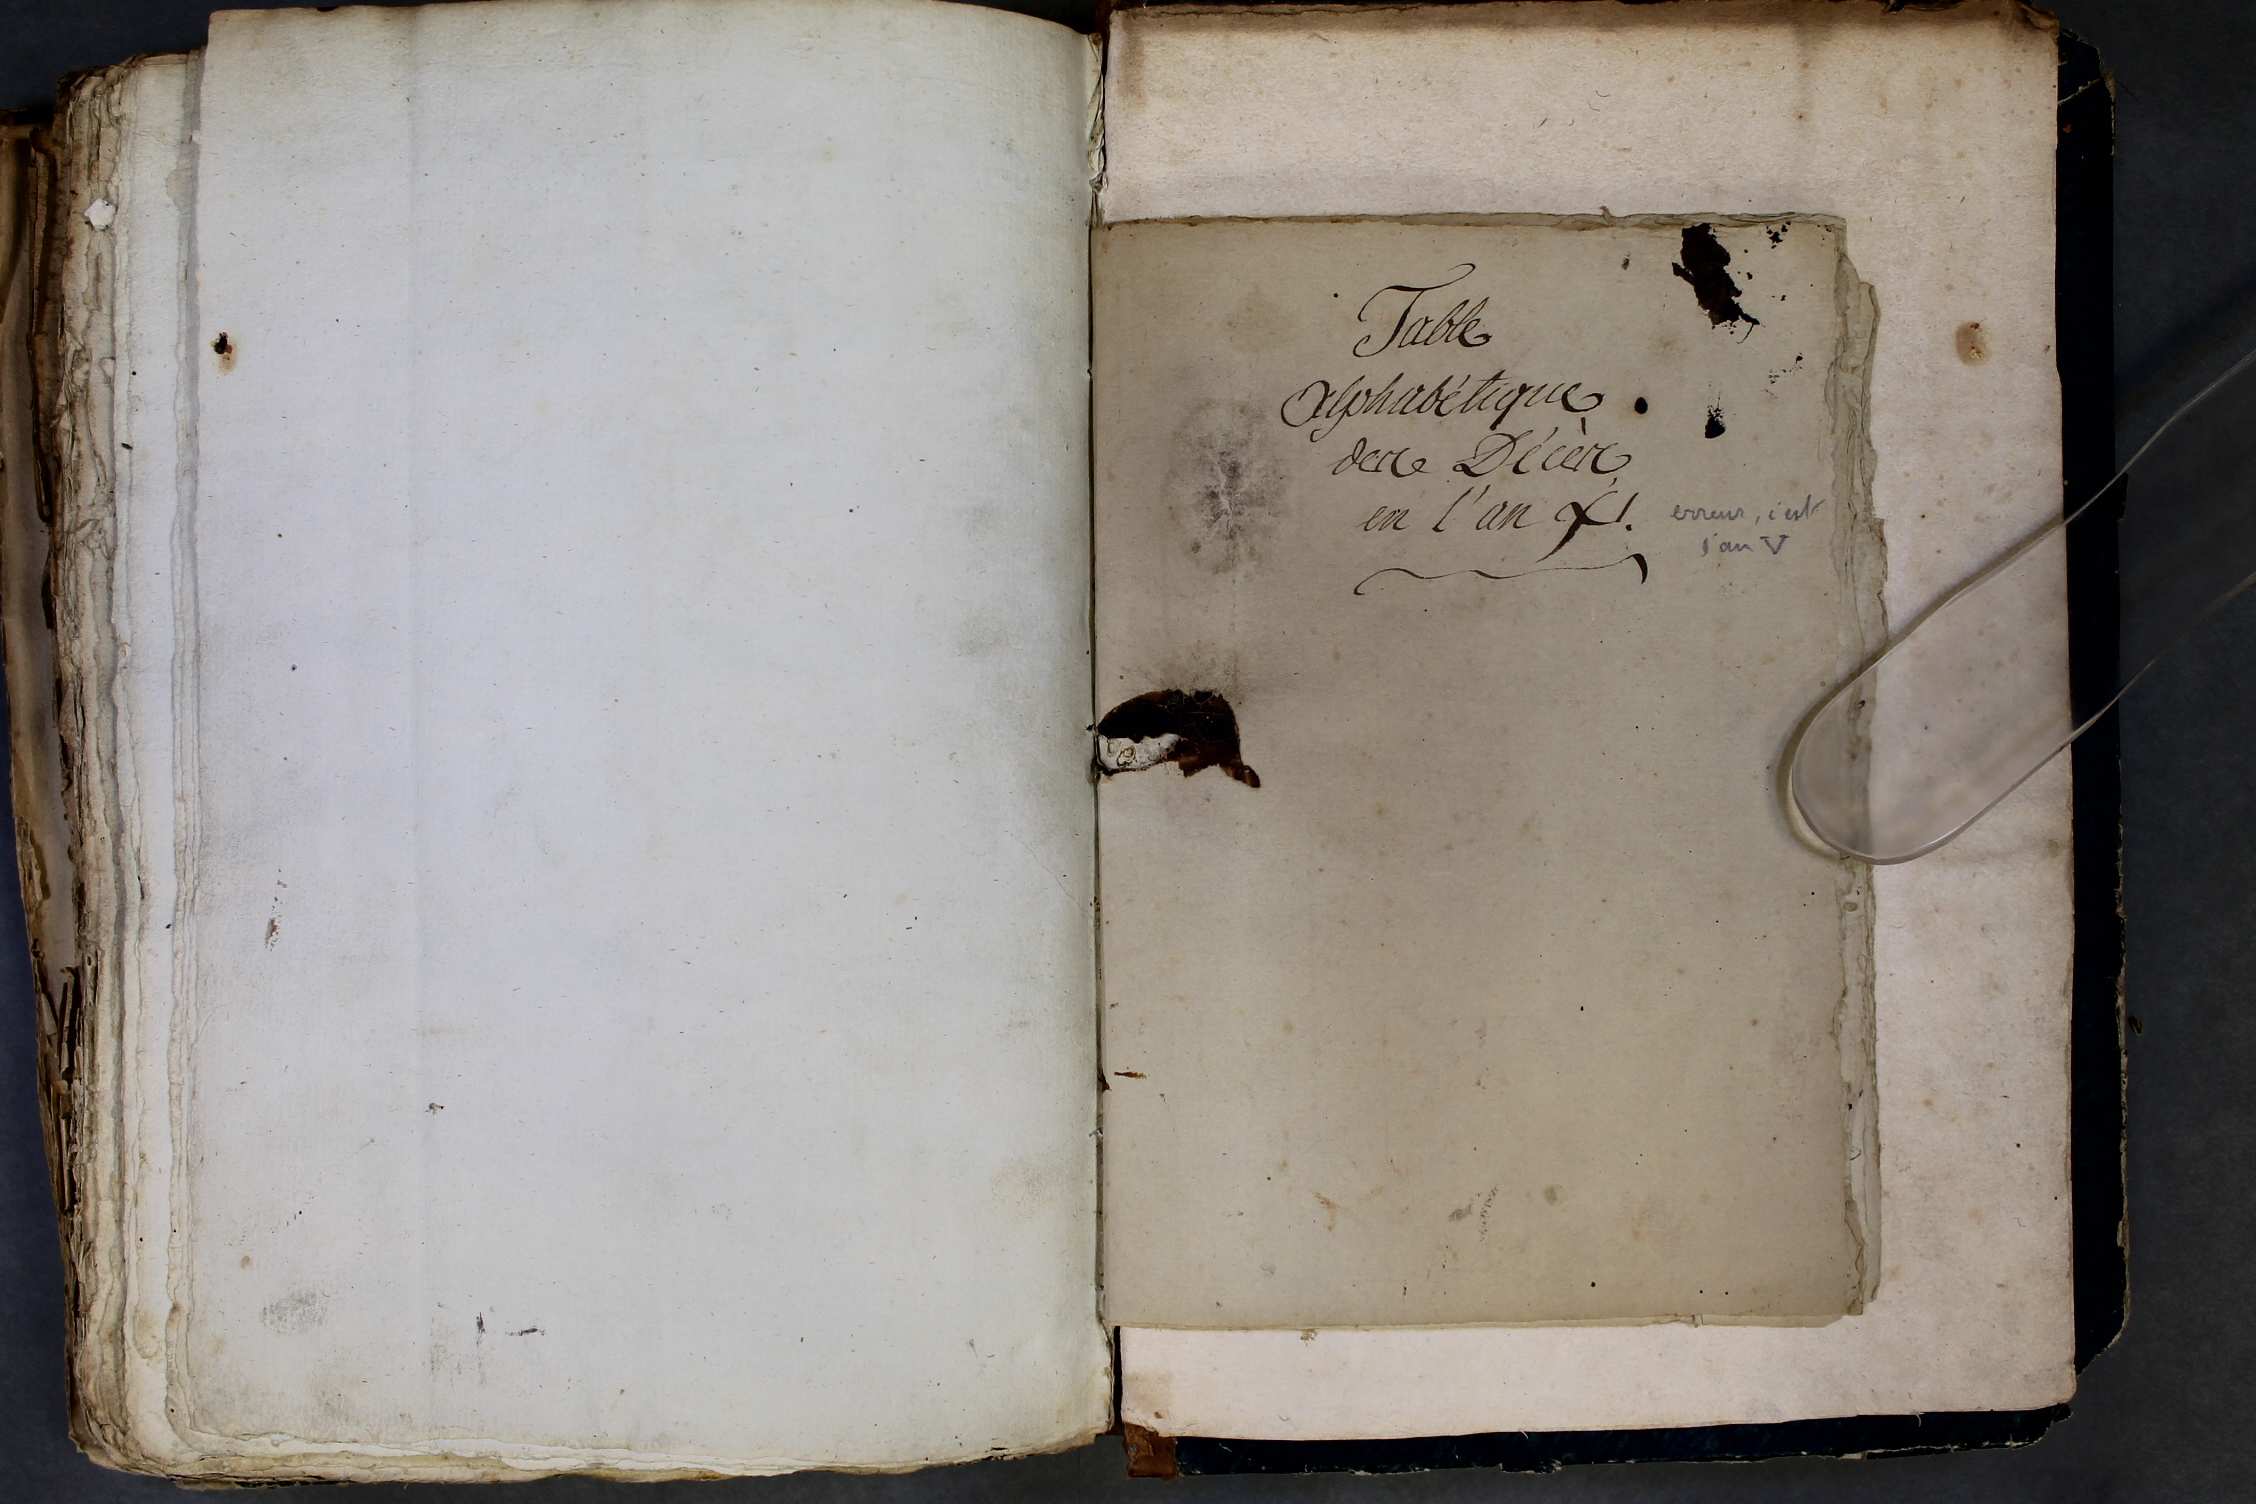 Table
alphabétique
des Décès
en l'an XI.
erreur, c'est
l'an V